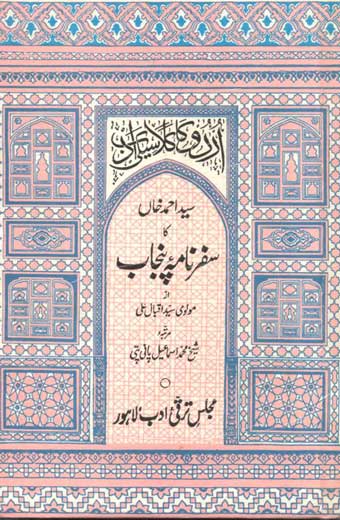 اردو کا کلاسیکی ادب
سید احمد خاں
کا
سفرنامۂ پنجاب
از
مولوی سید اقبال علی
مرتبہ
شیخ محمد اسماعیل پانی پتی
مجلس ترقیٔ ادب، لاہور